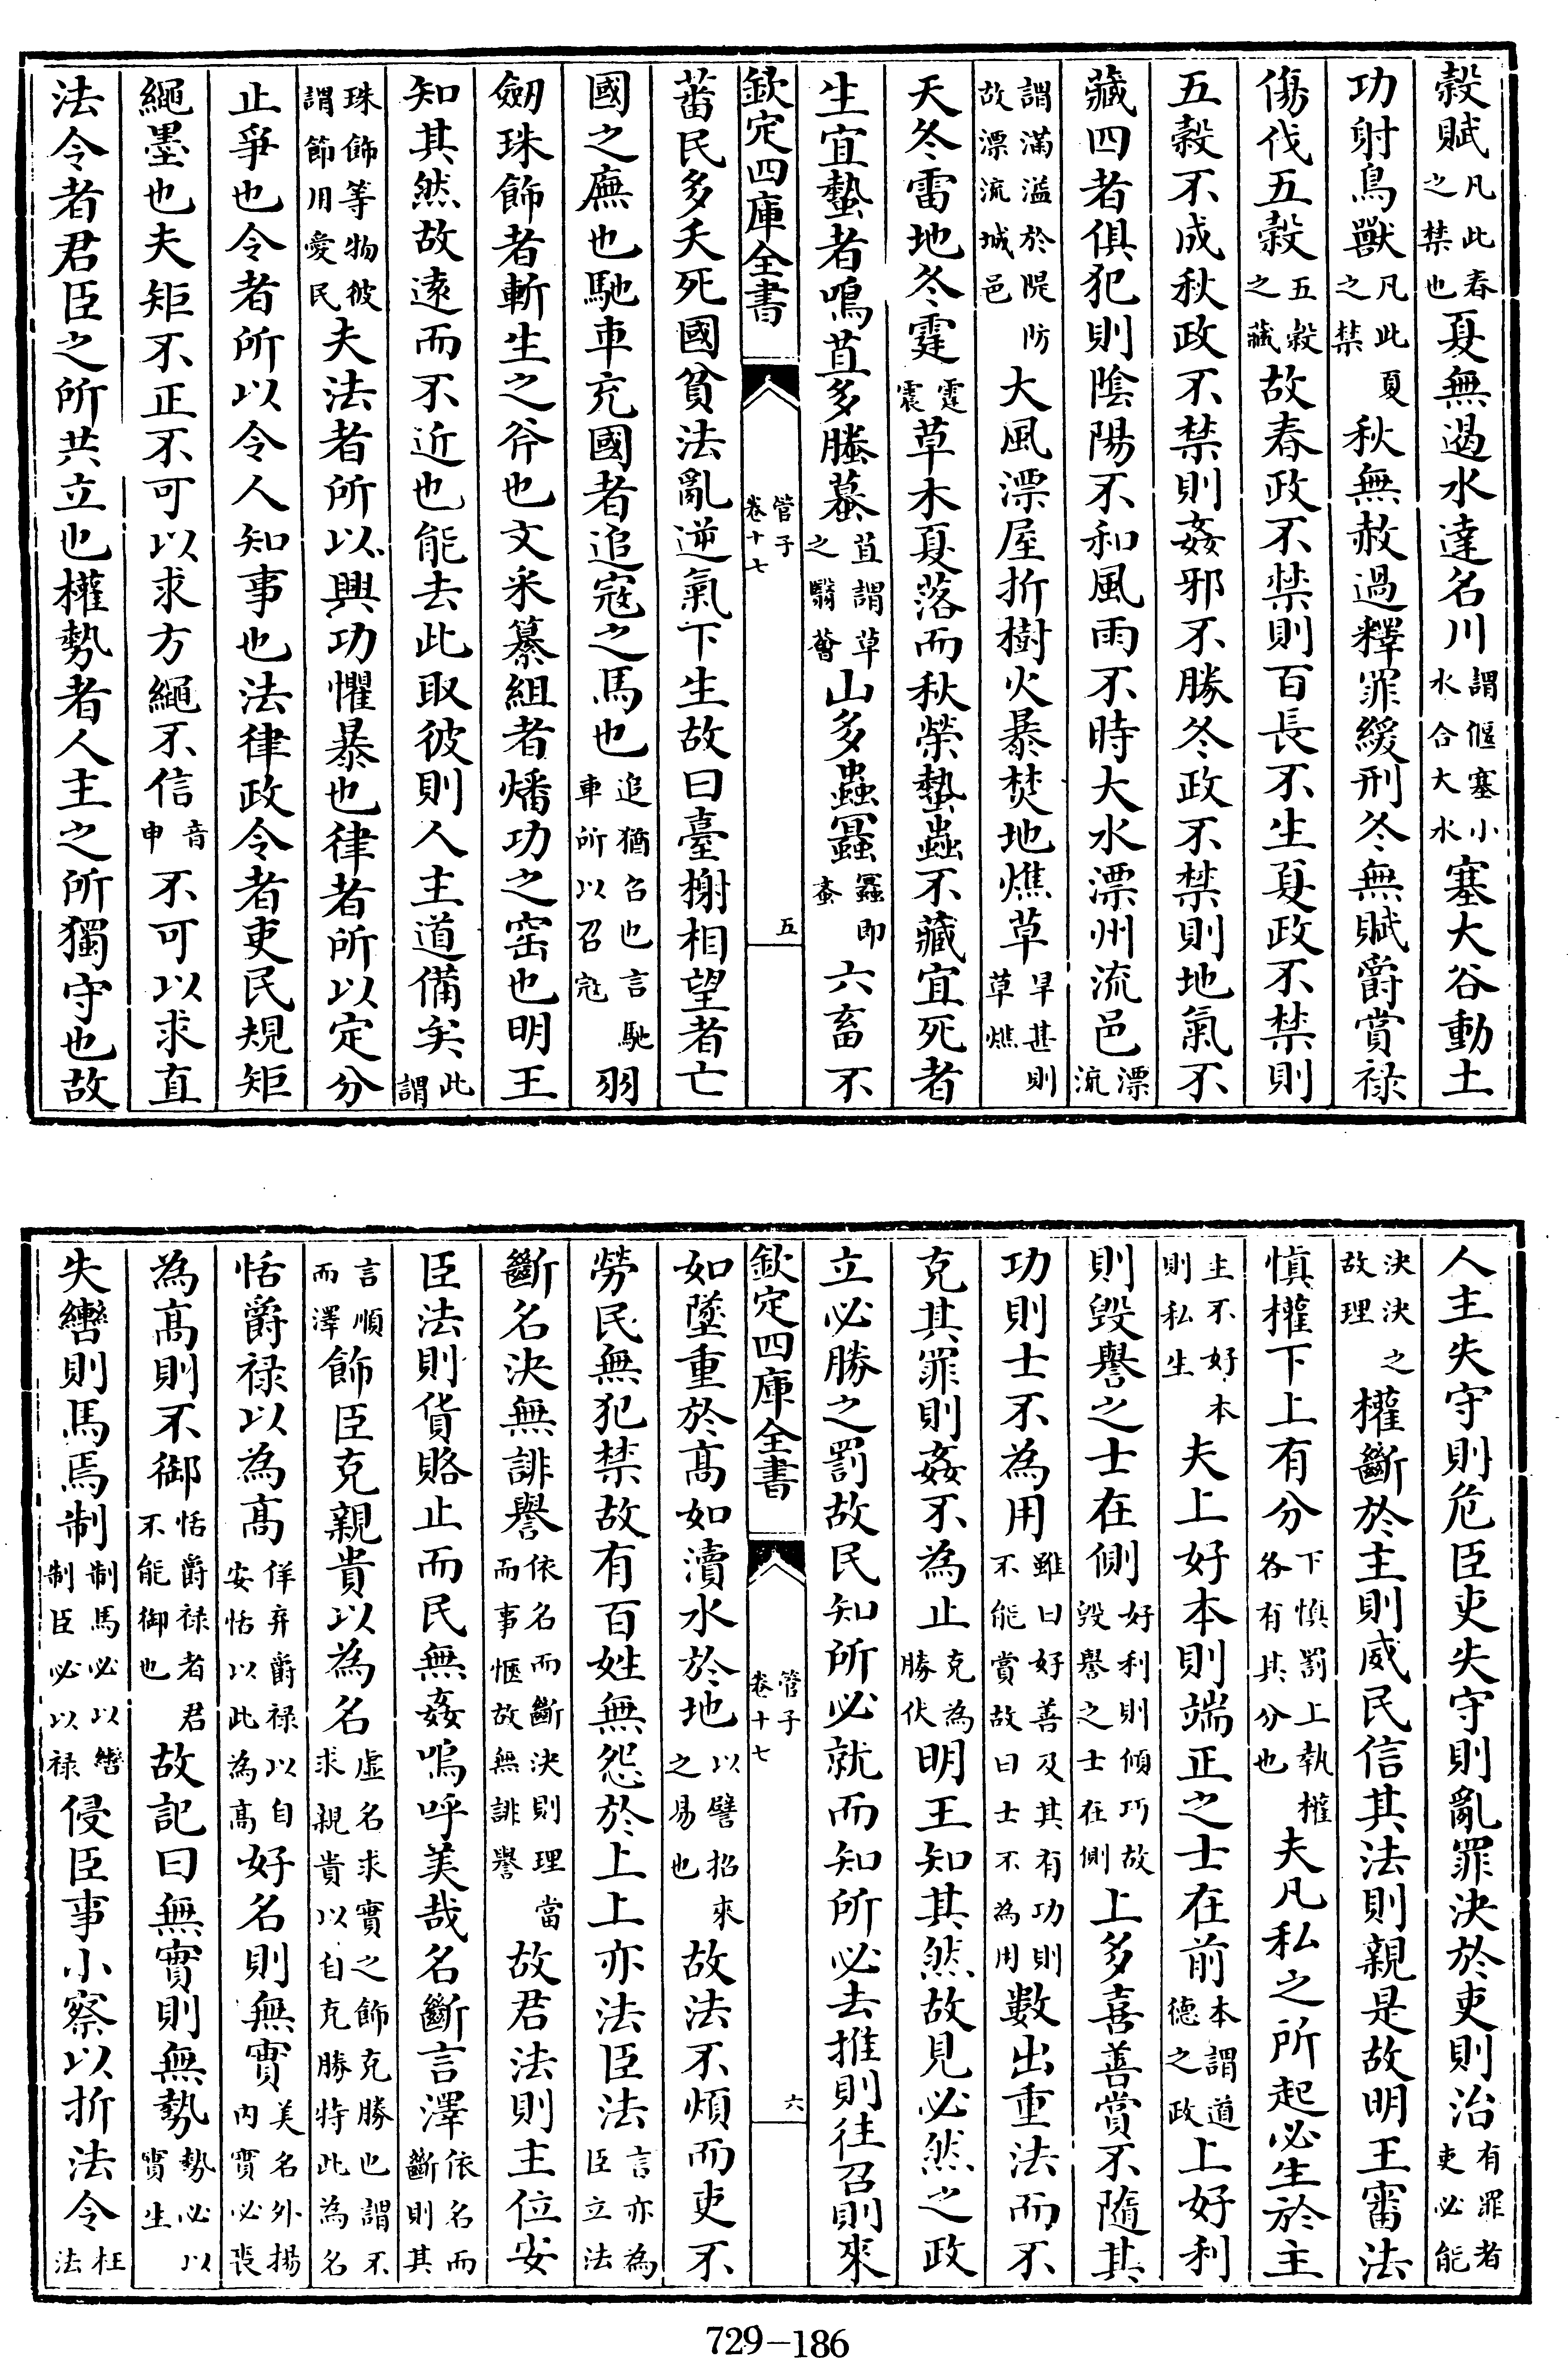 穀賦凡此春之禁也夏無遏水達名川謂偃塞小水合大水塞大谷動土
功射鳥獸凡此夏之禁秋無赦過釋罪緩刑冬無賦爵賞祿
傷伐五穀五穀之藏故春政不禁則百長不生夏政不禁則
五穀不成秋政不禁則姦邪不勝冬政不禁則地氣不
藏四者俱犯則陰陽不和風雨不時大水漂州流邑漂流
謂滿溢於隄防故漂流城邑大風漂屋折樹火暴焚地燋草旱甚則草燋
天冬雷地冬霆霆震草木夏落而秋榮蟄蟲不藏宜死者
生宜蟄者鳴苴多螣蟇苴謂草之翳薈山多蟲螶螶即蚉六畜不
欽定四庫全書 管子卷十七 五
蕃民多夭死國貧法亂逆氣下生故曰臺榭相望者亡
國之廡也馳車充國者追寇之馬也追猶召也言馳車所以召寇羽
劒珠飾者斬生之斧也文采纂組者燔功之窰也明王
知其然故遠而不近也能去此取彼則人主道備矣此謂
珠飾等物彼謂節用愛民夫法者所以興功懼暴也律者所以定分
止爭也令者所以令人知事也法律政令者吏民規矩
繩墨也夫矩不正不可以求方繩不信音申不可以求直
法令者君臣之所共立也權勢者人主之所獨守也故
人主失守則危臣吏失守則亂罪決於吏則治有罪者吏必能
決決之故理權斷於主則威民信其法則親是故明王審法
慎權下上有分下慎罰上執權各有其分也夫凡私之所起必生於主
主不好本則私生夫上好本則端正之士在前本謂道德之政上好利
則毀譽之士在側好利則傾巧故毀譽之士在側上多喜善賞不隨其
功則士不為用雖曰好善及其有功則不能賞故曰士不為用數出重法而不
克其罪則姦不為止克為勝伏明王知其然故見必然之政
立必勝之罰故民知所必就而知所必去推則往召則來
欽定四庫全書 管子卷十七 六
如墜重於高如瀆水於地以譬招來之易也故法不煩而吏不
勞民無犯禁故有百姓無怨於上上亦法臣法言亦為臣立法
斷名決無誹譽依名而斷決則理當而事愜故無誹譽故君法則主位安
臣法則貨賂止而民無姦嗚呼美哉名斷言澤依名而斷則其
言順而澤飾臣克親貴以為名虛名求實之飾克勝也謂不求親貴以自克勝恃此為名
恬爵祿以為高佯弃爵祿以自安恬以此為高好名則無實美名外揚內實必喪
為高則不御恬爵祿者君不能御也故記曰無實則無勢勢必以實生
失轡則馬焉制制馬必以轡制臣必以祿侵臣事小察以折法令枉法
729—186